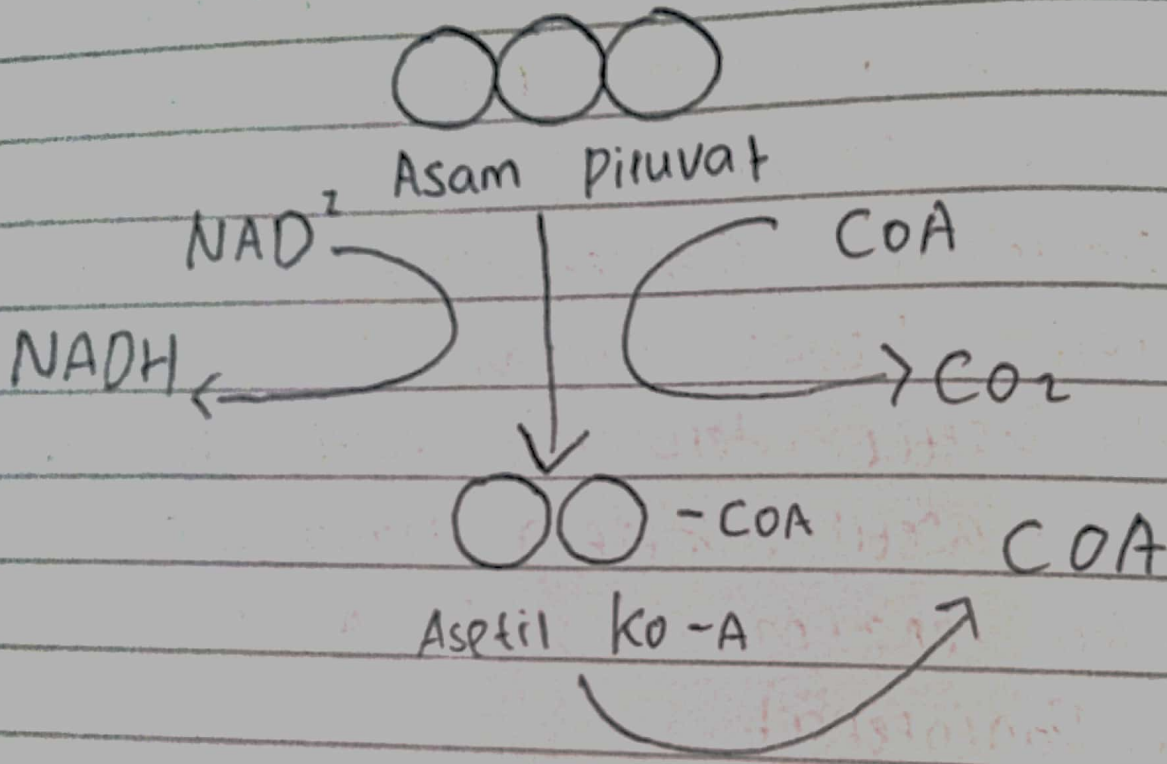 Asam Piruvat
NAD²
COA
NADH
CO₂
-COA
COA
Asetil Ko-A